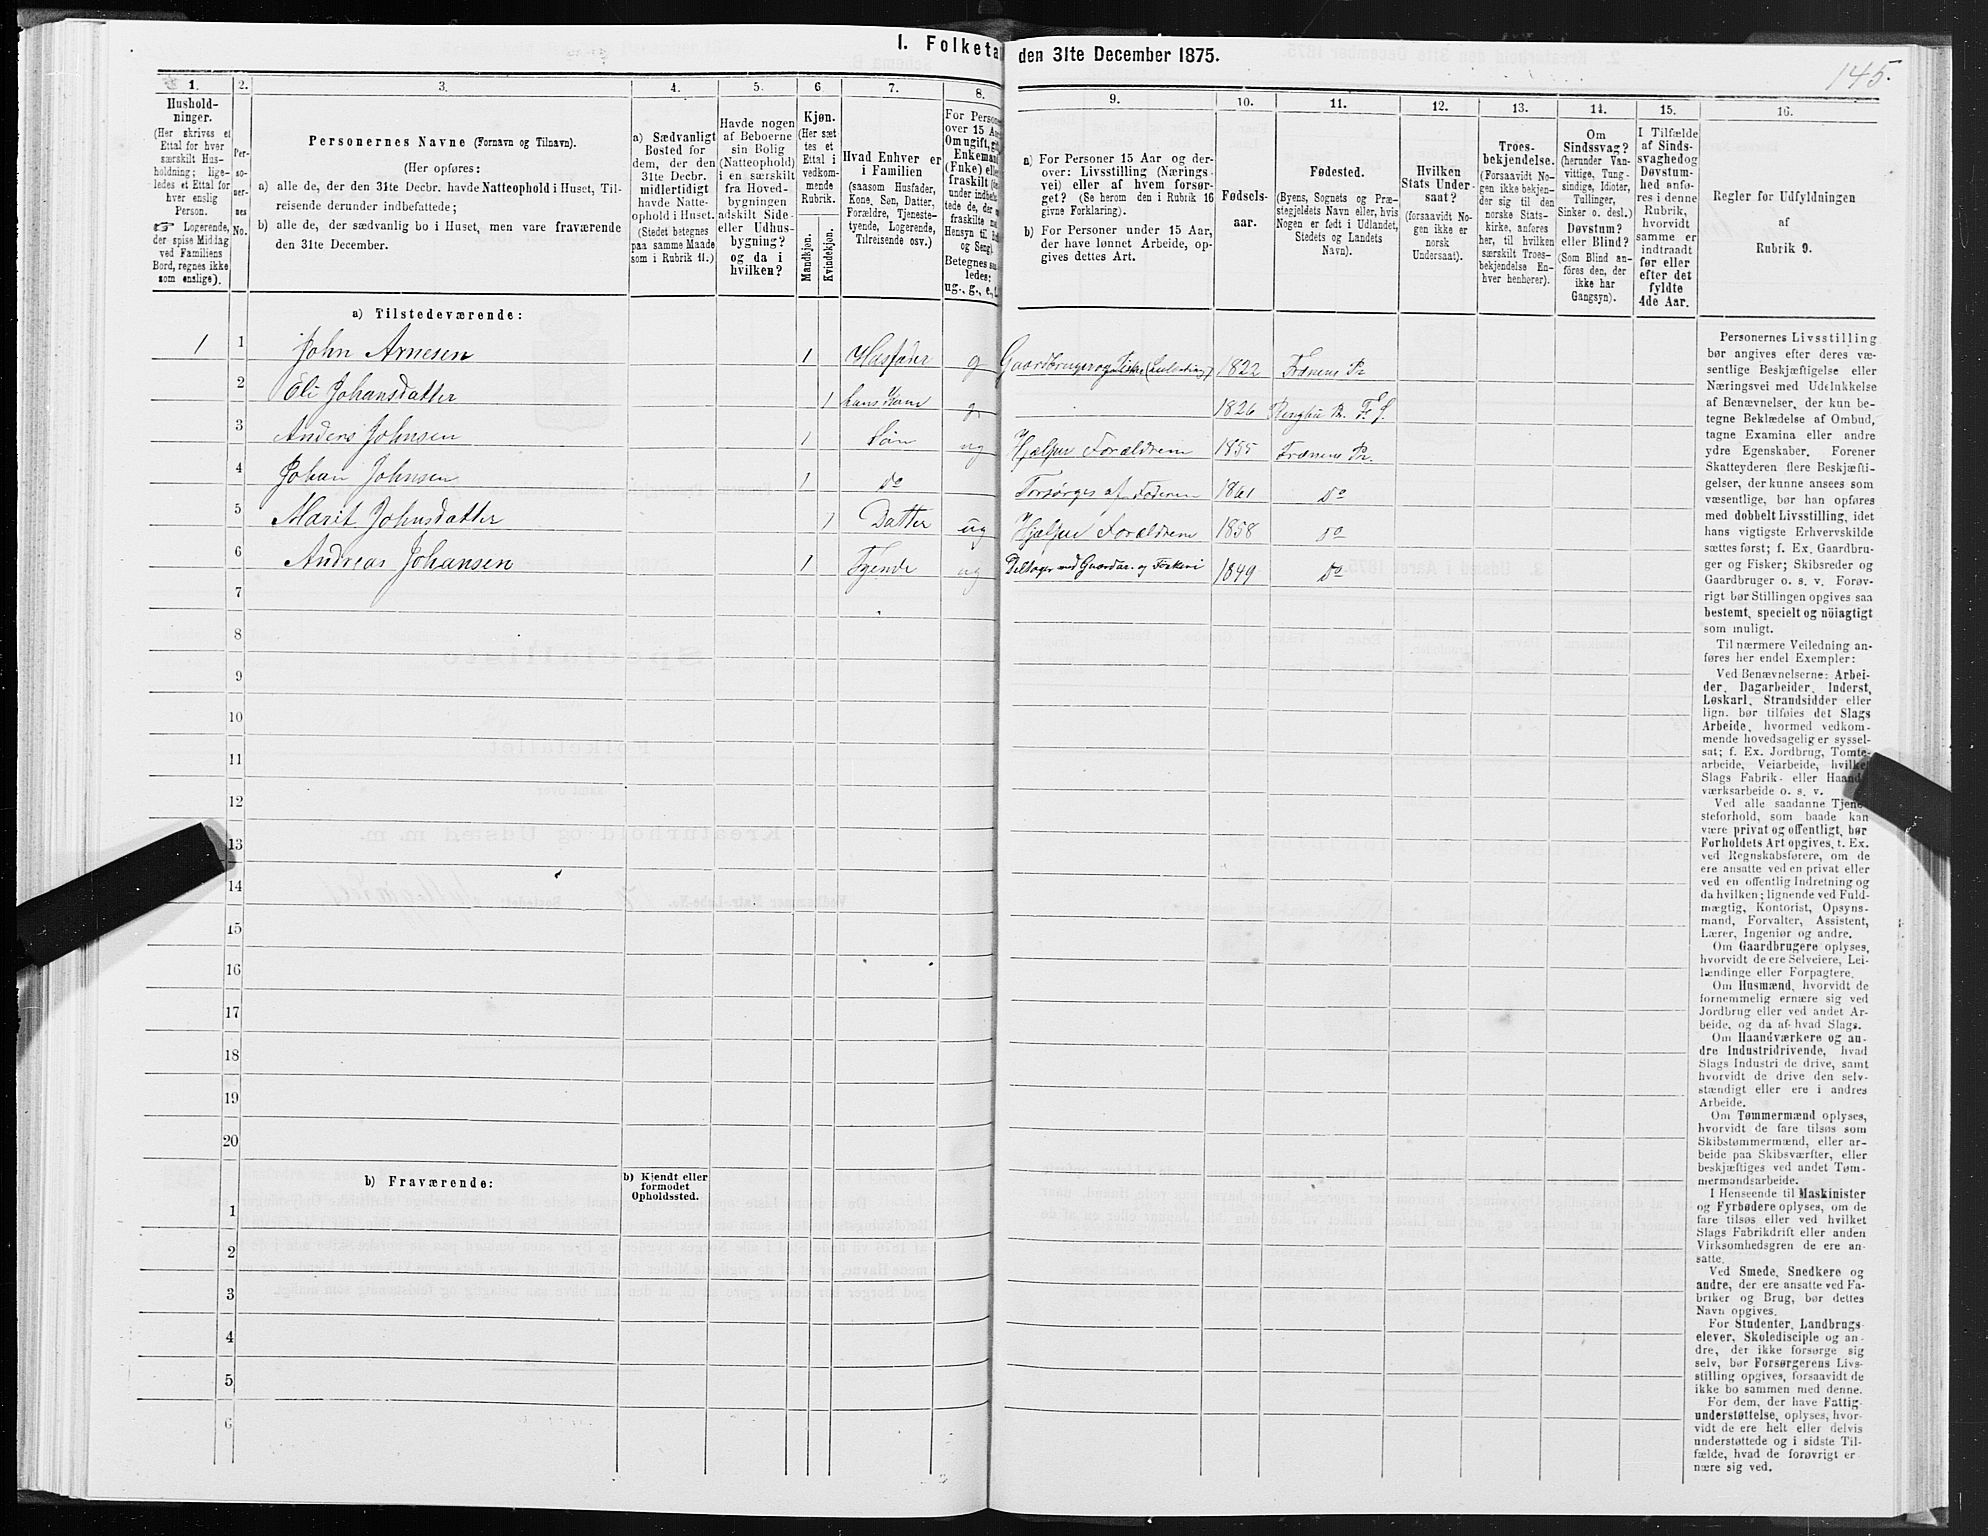 I. Folketal den 31te December 1875.
145.
1.
Hushold-
ninger.
(Her skrives et
Ettal for hver
særskilt Hus-
holdning; lige-
ledes et Ettal for
hver enslig
Person.
☞ Logerende,
der spise Middag
ved Familiens
Bord, regnes ikke
som enslige).
2.
Per-
so-
ner-
nes
No.
3.
Personernes Navne (Fornavn og Tilnavn).
(Her opføres:
a) alle de, der den 31te Decbr. havde Natteophold i Huset, Til-
reisende derunder indbefattede;
b) alle de, der sædvanlig bo i Huset, men vare fraværende
den 31te December.
4.
a) Sædvanligt
Bosted for
dem, der den
31te Decbr.
midlertidigt
havde Natte-
ophold i Huset.
(Stedet betegnes
paa samme Maade
som i Rubrik 11.)
5.
Havde nogen
af Beboerne
sin Bolig
(Natteophold)
i en særskilt
fra Hoved-
bygningen
adskilt Side-
eller Udhus-
bygning?
og da i
hvilken?
6
Kjøn.
(Her sæt
tes et
Ettal i
vedkom-
mende
Rubrik.
Mandkjøn.
Kvindekjøn.
7.
Hvad Enhver er
i Familien
(saasom Husfader,
Kone, Søn, Datter,
Forældre, Tjeneste-
tyende, Logerende,
Tilreisende osv.)
8.
For Person
over 15 Aar
Om ugift, gift
Enkemand
(Enke) eller
fraskilt
Betegnes saa
ledes:
ug., g., e., f.
9.
a) For Personer 15 Aar og der-
over: Livsstilling (Nærings-
vei) eller af hvem forsør-
get? (Se herom den i Rubrik 16
givne Forklaring).
b) For Personer under 15 Aar,
der have lønnet Arbeide, op-
gives dettes Art.
10.
Fødsels-
aar.
11.
Fødested.
(Byens, Sognets og Præ-
stegjeldets Navn eller, hvis
Nogen er født i Udlandet,
Stedets og Landets
Navn).
12.
Hvilken
Stats Under-
saat?
(forsaavidt No-
gen ikke er
norsk
Undersaat).
13.
Troes-
bekjendelse.
(Forsaavidt No-
gen ikke bekjen-
der sig til den
norske Stats-
kirke, anføres
her, til hvilken
særskilt Troes-
bekjendelse En-
hver henhører).
14.
Om
Sindssvag?
(herunder Van-
vittige, Tung-
sindige, Idioter,
Tullinger,
Sinker o. desl.)
Døvstum?
eller Blind?
(Som Blind an-
føres den, der
ikke har
Gangsyn).
15.
I Tilfælde
af Sinds-
svaghed og
Døvstum-
hed anfø-
res i denne
Rubrik,
hvorvidt
samme er
indtraadt
før eller
efter det
fyldte
4de Aar.
16.
Regler for Udfyldningen
af
Rubrik 9.
a) Tilstedeværende:
1 1 John Arnesen 1 Husfader g Gaardbruger og Fisker 1822 Frænens Pr
2 Eli Johansdatter 1 hans Kone g 1826 Ringbu Pr.
3 Anders Johnsen 1 Søn ug Hjælper Forældrene 1855 Frænens Pr.
4 Johan Johnsen 1 do Forsørges af Faderen 1861 do
5 Marit Johnsdatter 1 Datter ug Hjælper Forældrene 1858 do
6 Andreas Johansen 1 Tyende ug Deltager ved Gaardar. og Fiskeri 1849 do
7
8
9
10
11
12
13
14
15
16
17
18
19
20
b) Fraværende:
b) Kjendt eller
formodet
Opholdssted.
1
2
3
4
5
6
Personernes Livsstilling
bør angives efter deres væ-
sentlige Beskjæftigelse eller
Næringsvei med Udelukkelse
af Benævnelser, der kun be-
tegne Beklædelse af Ombud,
tagne Examina eller andre
ydre Egenskaber. Forener
Skatteyderen flere Beskjæfti-
gelser, der kunne ansees som
væsentlige, bør han opføres
med dobbelt Livsstilling, idet
hans vigtigste Erhvervskilde
sættes først; f. Ex. Gaardbru-
ger og Fisker; Skibsreder og
Gaardbruger o. s. v. Forøv-
rigt bør Stillingen opgives saa
bestemt, specielt og nöiagtigt
som muligt.
Til nærmere Veiledning an-
føres her endel Exempler:
Ved Benævnelserne: Arbei-
der, Dagarbeider, Inderst,
Løskarl, Strandsidder eller
lign. bør tilføies det Slags
Arbeide, hvormed vedkom-
mende hovedsagelig er syssel-
sat; f. Ex. Jordbrug, Tomte-
arbeide, Veiarbeide, hvilket
Slags Fabrik- eller Haand-
værksarbeide o. s. v.
Ved alle saadanne Tjene-
steforhold, som baade kan
være privat og offentligt, bør
Forholdets Art opgives, t. Ex.
ved Regnskabsførere, om de
ere ansatte ved en privat eller
ved en offentlig Indretning og
da hvilken; lignende ved Fuld-
mægtig, Kontorist, Opsyns-
mand, Forvalter, Assistent,
Lærer, Ingeniør og andre.
Om Gaardbrugere oplyses,
hvorvidt de ere Selveiere, Lei-
lændinge eller Forpagtere.
Om Husmænd, hvorvidt de
fornemmelig ernære sig ved
Jordbrug eller ved andet Ar-
beide, og da af hvad Slags.
Om Haandværkere og an-
dre Industridrivende, hvad
Slags Industri de drive, samt
hvorvidt de drive den selv-
stændigt eller ere i andres
Arbeide.
Om Tømmermænd oplyses,
hvorvidt de fare tilsøs som
Skibstømmermænd, eller ar-
beide paa Skibsværfter, eller
beskjæftiges ved andet Tøm-
mermandsarbeide.
I Henseende til Maskinister
og Fyrbødere oplyses, om de
fare tilsøs eller ved hvilket
Slags Fabrikdrift eller anden
Virksomhedsgren de ere an-
satte.
Ved Smede, Snedkere og
andre, der ere ansatte ved Fa-
briker og Brug, bør dettes
Navn opgives.
For Studenter, Landbrugs-
elever, Skoledisciple og an-
dre, der ikke forsørge sig
selv, bør Forsørgerens Livs-
stilling opgives, forsaavidt de
ikke bo sammen med denne.
For dem, der have Fattig-
understøttelse, oplyses, hvor-
vidt de ere helt eller delvis
understøttede og i sidste Til-
fælde, hvad de forøvrigt er-
nære sig ved.